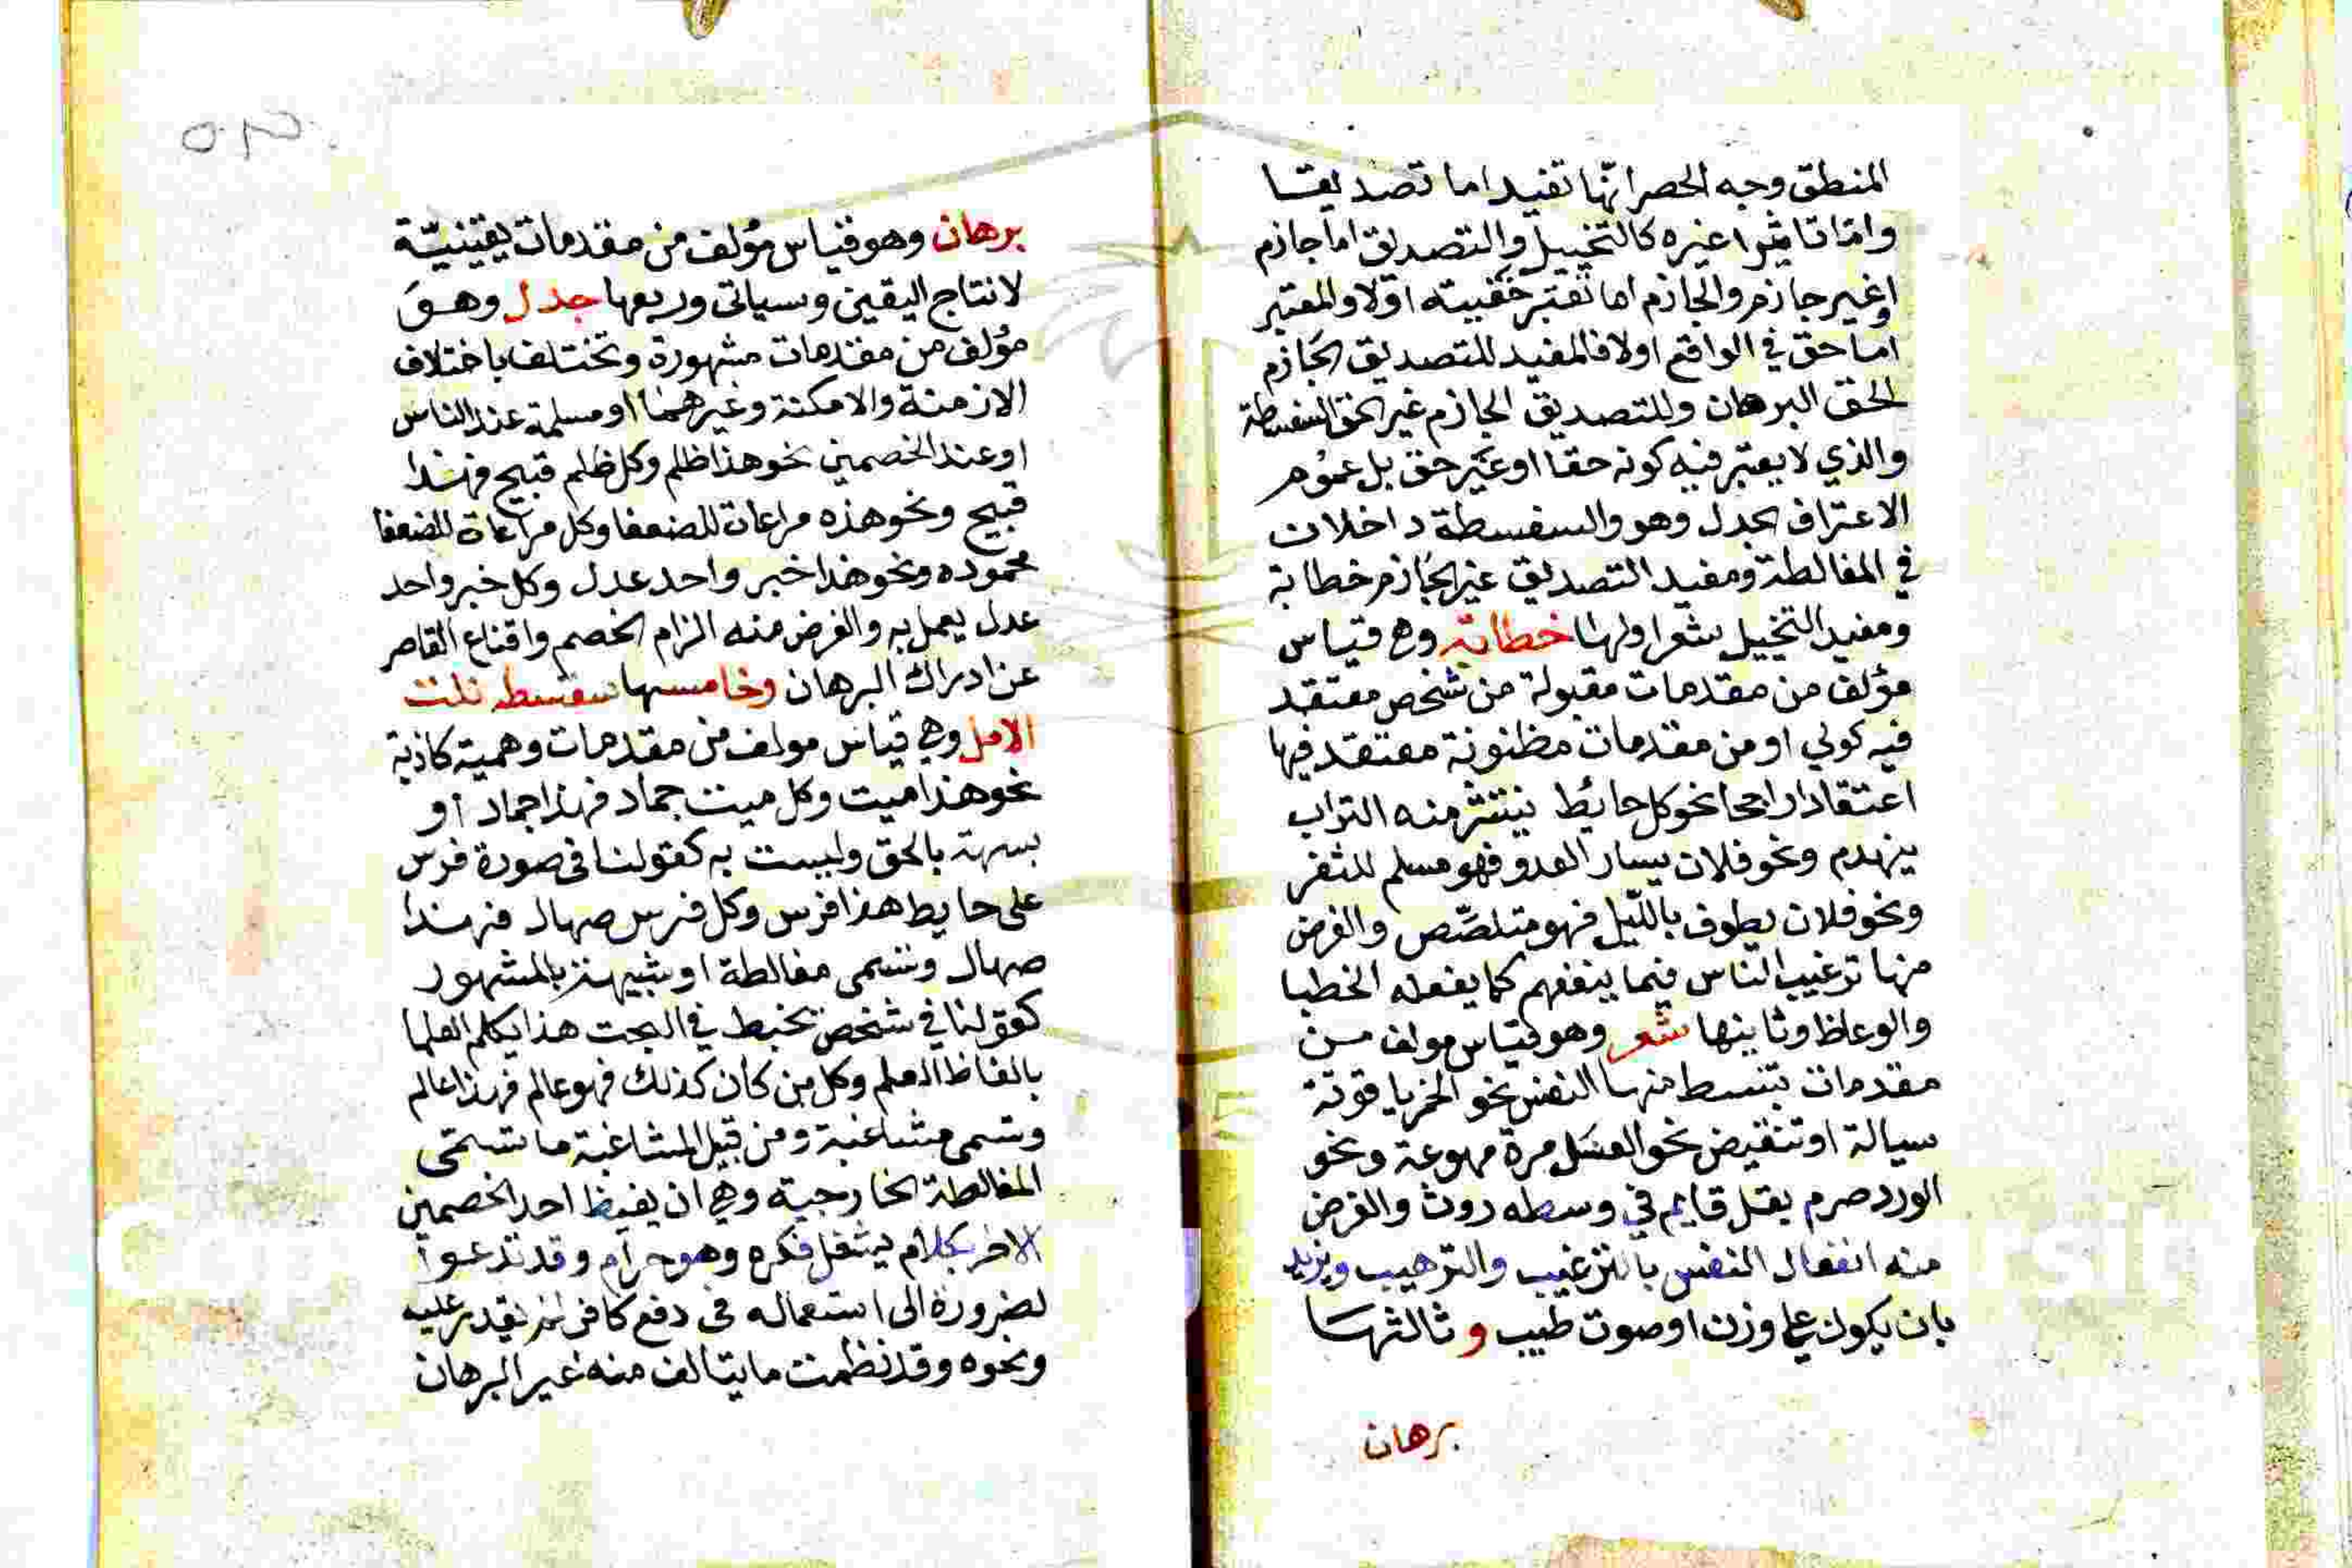 المنطق وجه الحصر انّها تفيد اما تصديقا
وامّا تاثيرا غيره كالتخييل والتصديق اما جازم
او غير جازم والجازم اما تعتبر حقيته اولا والمعتبر
اما حق في الواقع اولا فالمفيد للتصديق الجازم
الحق البرهان وللتصديق الجازم غير الحق السفسطة
والذي لا يعتبر فيه كونه حقا او غير حق بل عموم
الاعتراف الجدل وهو والسفسطة داخلان
في المغالطة ومفيد التصديق غير الجازم خطابة
ومفيد التخييل شعر اولها خطابة وهي قياس
مؤلف من مقدمات مقبولة من شخص معتقد
فيه كولي او من مقدمات مظنونة معتقد فيها
اعتقادا راجحا نحو كل حائط ينتثر منه التراب
ينهدم ونحو فلان يسار العدو فهو مسلم للثغر
ونحو فلان يطوف بالليل فهو متلصّص والغرض
منها ترغيب الناس فيما ينفعهم كما يفعله الخطبا
والوعاظ وثانيها شعر وهو قياس مولف من
مقدمات تنبسط منها النفس نحو الخمر ياقوتة
سيالة او تنقبض نحو العسل مرة مهوعة ونحو
الورد صرم بغل قايم في وسطه روث والغرض
منه انفعال النفس بالترغيب والترهيب ويزيد
بان يكون على وزن او صوت طيب وثالثها
برهان
برهان وهو قياس مؤلف من مقدمات يقينيّة
لانتاج اليقين وسياتى ورابعها جدل وهو
مؤلف من مقدمات مشهورة وتختلف باختلاف
الازمنة والامكنة وغيرهما او مسلمة عند الناس
او عند الخصمين نحو هذا ظلم وكل ظلم قبيح فهذا
قبيح ونحو هذه مراعاة للضعفا وكل مراعاة للضعفا
محموده ونحو هذا خبر واحد عدل وكل خبر واحد
عدل يعمل به والغرض منه الزام الخصم واقناع القاصر
عن ادراك البرهان وخامسها سفسطه نلت
الامل وهي قياس مولف من مقدمات وهمية كاذبة
نحو هذا ميت وكل ميت جماد فهذا جماد او
بالحق وليست به كقولنا في صورة فرس
على حايط هذا فرس وكل فرس صهال فهذا
صهال وتسمى مغالطة او شبيهة بالمشهور
كقولنا في شخص يخبط في البحث هذا يكلم العلما
بالفاظ العلم وكل من كان كذلك فهو عالم فهذا عالم
وتسمى مشاغبة ومن قبيل المشاغبة ما تسمى
المغالطة الخارجية وهي ان يغيظ احد الخصمين
الاخر بكلام يشغل فكره وهو حرام وقد تدعوا
لضرورة الى استعماله في دفع كافر لم يقدر عليه
ونحوه وقد نظمت ما يتالف منه غير البرهان